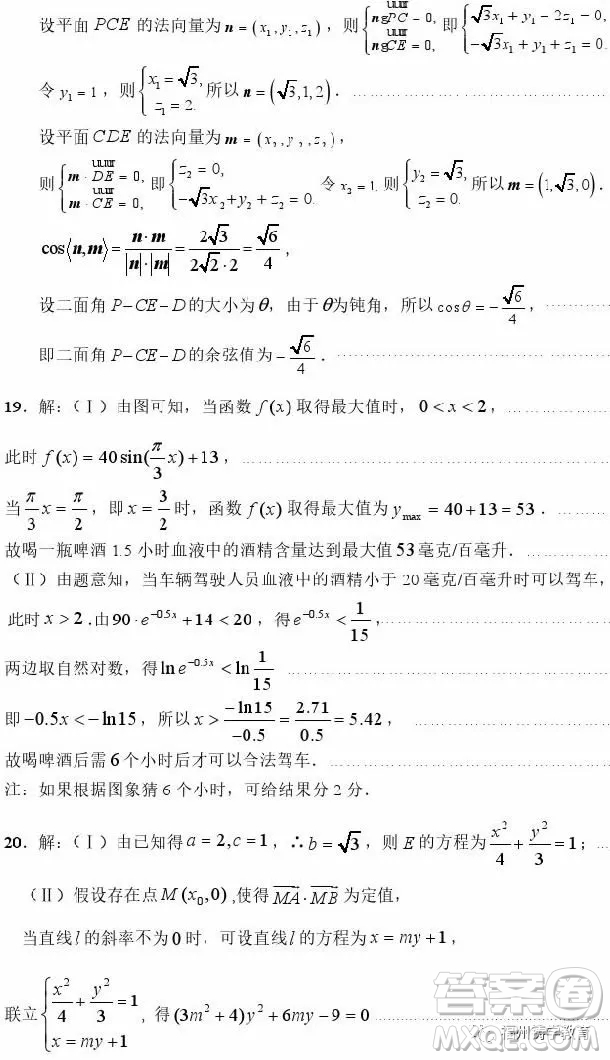 设平面 PCE 的法向量为 n = (x₁, y₁, z₁)，则 { n g PC = 0, n g CE = 0, 即 { √3x₁ + y₁ − 2z₁ = 0, −√3x₁ + y₁ + z₁ = 0.
令 y₁ = 1，则 { x₁ = √3, z₁ = 2. 所以 n = (√3, 1, 2).
设平面 CDE 的法向量为 m = (x₂, y₂, z₂)，
则 { m · DE = 0, m · CE = 0, 即 { z₂ = 0, −√3x₂ + y₂ + z₂ = 0. 令 x₂ = 1, 则 { y₂ = √3, z₂ = 0. 所以 m = (1, √3, 0).
cos⟨n, m⟩ = n·m / |n|·|m| = 2√3 / 2√2·2 = √6 / 4，
设二面角 P−CE−D 的大小为 θ，由于 θ 为钝角，所以 cosθ = −√6/4，
即二面角 P−CE−D 的余弦值为 −√6/4.
19. 解：（Ⅰ）由图可知，当函数 f(x) 取得最大值时，0 < x < 2，
此时 f(x) = 40sin(π/3 x) + 13，
当 π/3 x = π/2，即 x = 3/2 时，函数 f(x) 取得最大值为 y max = 40 + 13 = 53.
故喝一瓶啤酒 1.5 小时血液中的酒精含量达到最大值 53 毫克/百毫升.
（Ⅱ）由题意知，当车辆驾驶人员血液中的酒精小于 20 毫克/百毫升时可以驾车，
此时 x > 2 .由 90·e^−0.5x + 14 < 20，得 e^−0.5x < 1/15，
两边取自然对数，得 ln e^−0.5x < ln 1/15
即 −0.5x < −ln15，所以 x > −ln15/−0.5 = 2.71/0.5 = 5.42，
故喝啤酒后需 6 个小时后才可以合法驾车.
注：如果根据图象猜 6 个小时，可给结果分 2 分.
20. 解：（Ⅰ）由已知得 a = 2, c = 1，∴ b = √3，则 E 的方程为 x²/4 + y²/3 = 1；
（Ⅱ）假设存在点 M (x₀,0) ,使得 MA · MB 为定值，
当直线 l 的斜率不为 0 时，可设直线 l 的方程为 x = my + 1，
联立 { x²/4 + y²/3 = 1, x = my + 1, 得 (3m² + 4)y² + 6my − 9 = 0
答案圈